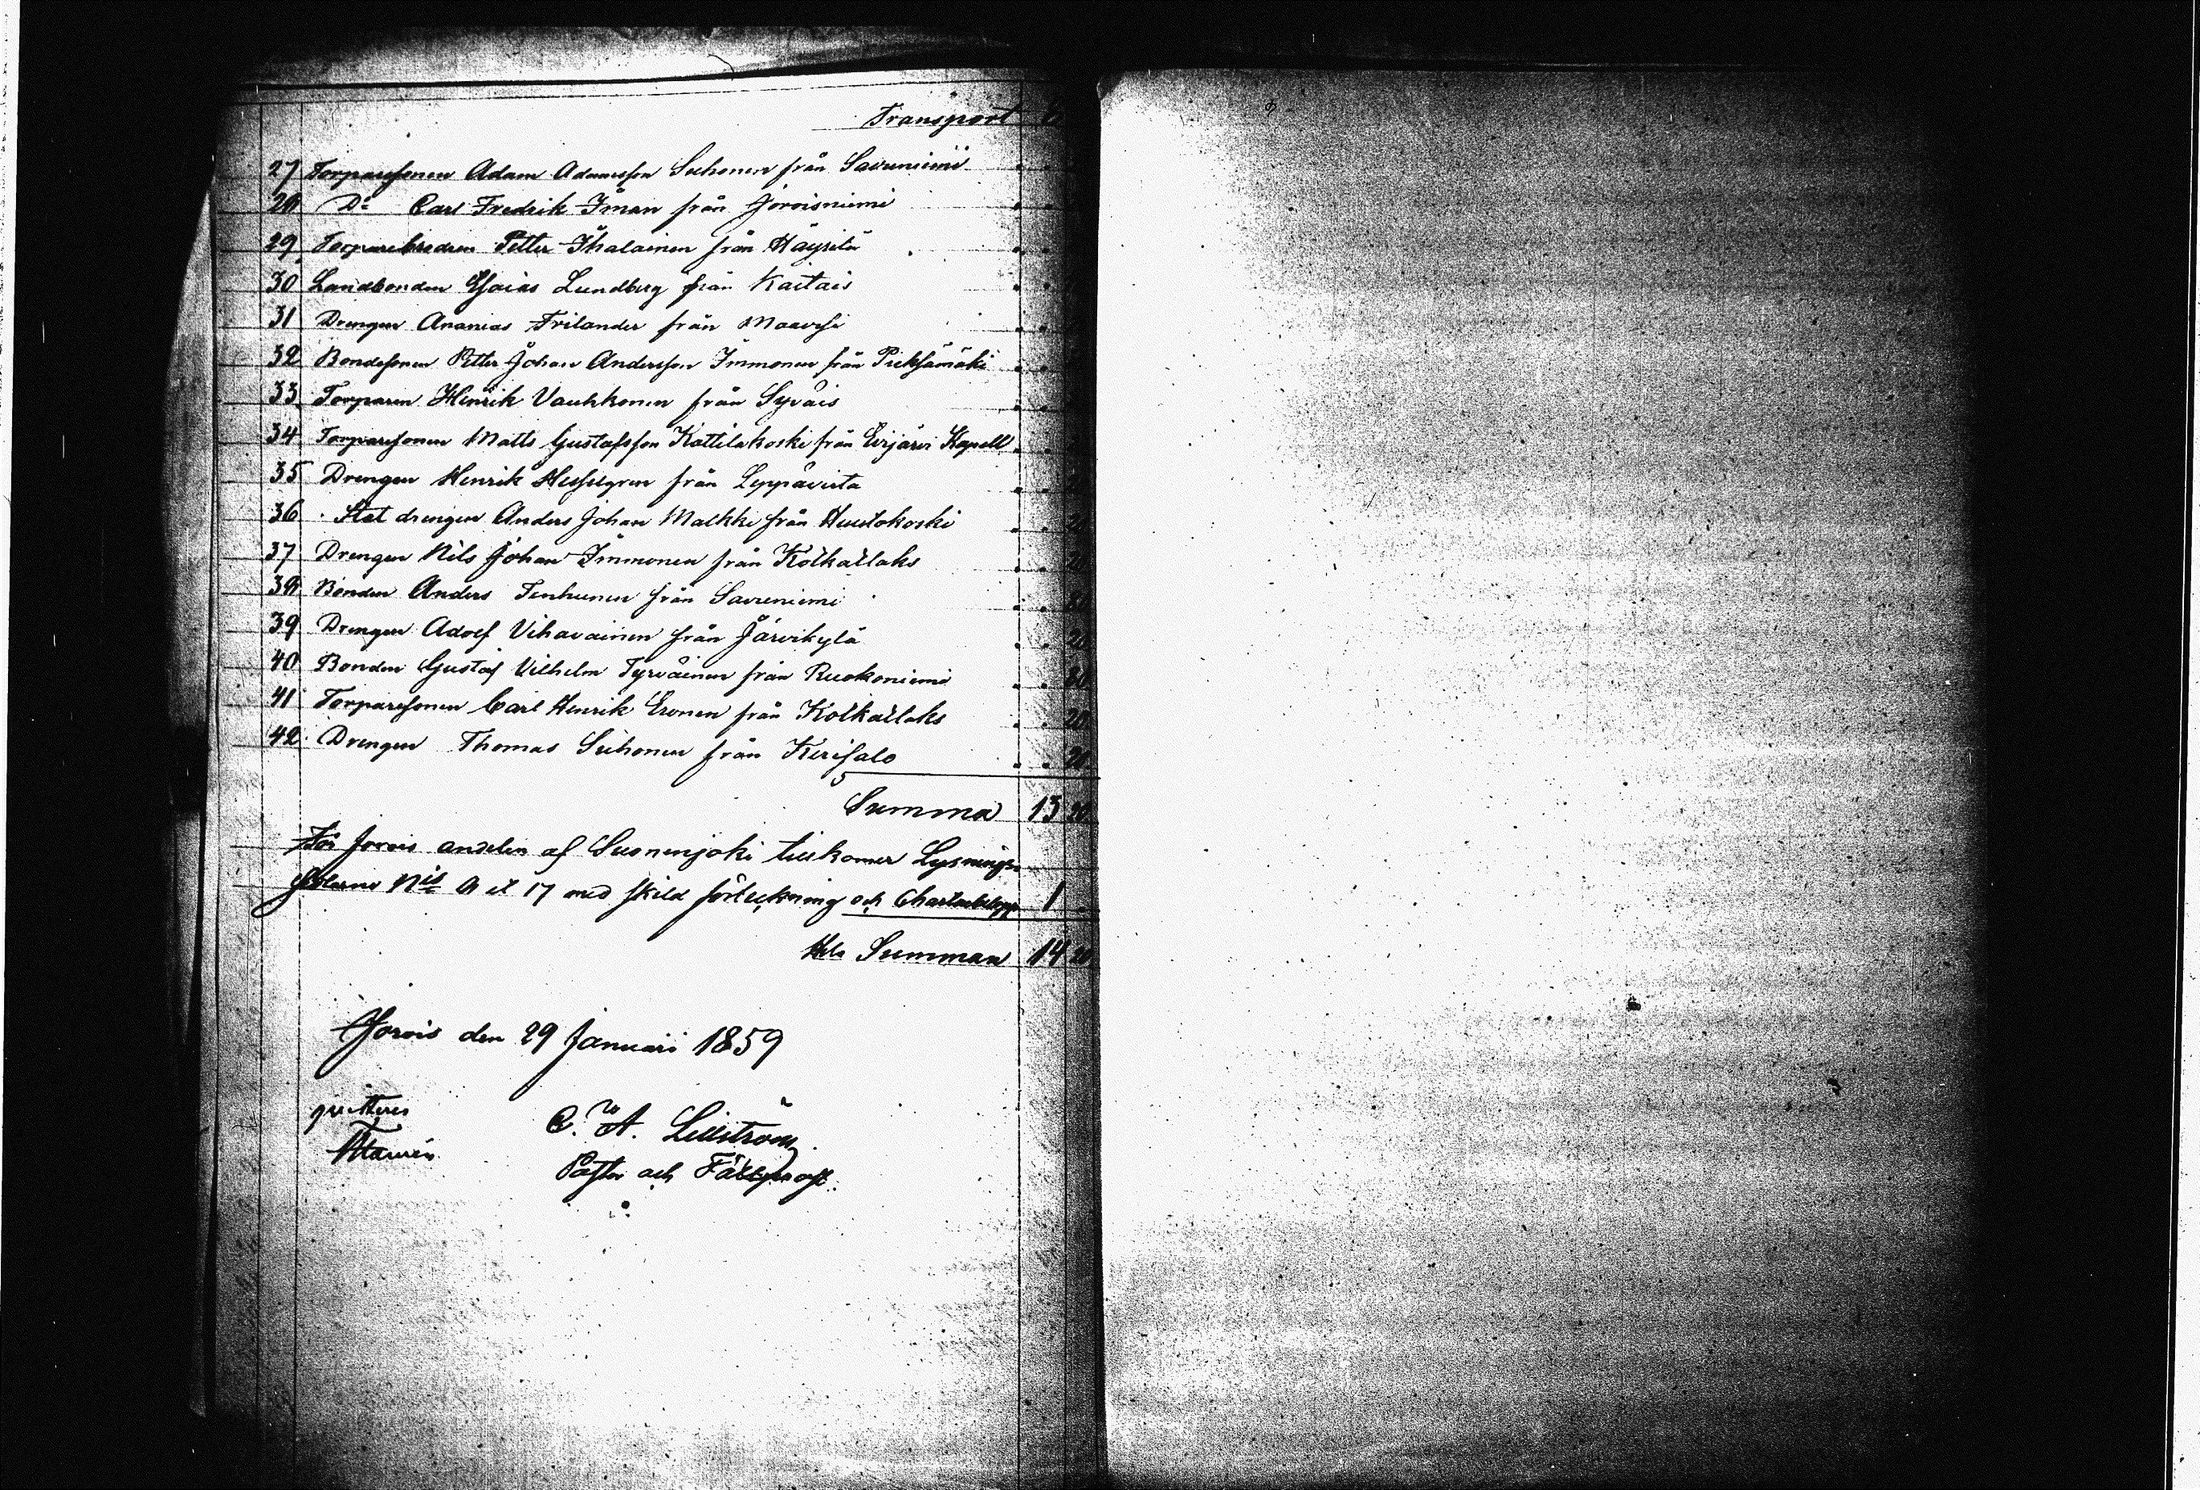 Transport 6
27 Torparesonen Adam Adamsson Suhonen från Savuniemi
28 Do Carl Fredrik Iman från Joroisniemi
29 Torpare brodren Petter Ihalainen från Häyrilä
30 Landbonden Esaias Lundberg från Kaitais
31 Drengen Ananias Frilander från Maavesi
32 Bondesonen Petter Johan Andersson Immonen från Pieksämäki
33 Torparen Henrik Vauhkonen från Syväis
34 Torparesonen Matts Gustafsson Kattilakoski från Evijärvi Kapell
35 Drengen Henrik Hesselgren från Leppävirta 20
36 Stat drengen Anders Johan Malkki från Huutokoski 20
37 Drengen Nils Johan Immonen från Kolkatlaks 20
38 Bonden Anders Tenhunen från Savuniemi 80
39 Drengen Adolf Vihavainen från Järvikylä 20
40 Bonden Gustaf Vilhelm Tyrväinen från Ruokoniemi 80
41 Torparesonen Carl Henrik Eronen från Kolkatlaks 20
42 Drengen Thomas Suhonen från Kerisalo 20
Summa 13 20
För Jorois andelen af Suonenjoki tillkommer Lysnings-
Nis 8 et 17 med skild förteckning och Chartabelopp 1
Hela Summan 14 20
Jorois den 29 Januari 1859
qvitteras
C. A. Lillström
Pastor och Fältprost.